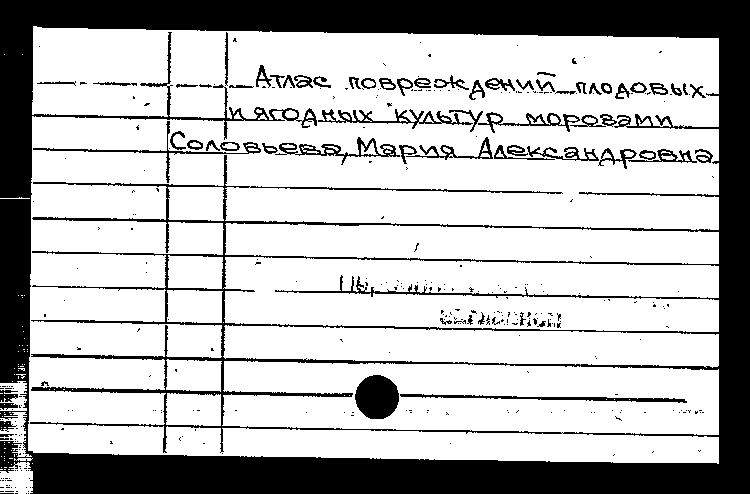 Атлас повреждений плодовых
и ягодных культур морозами
Соловьева, Мария Александровна